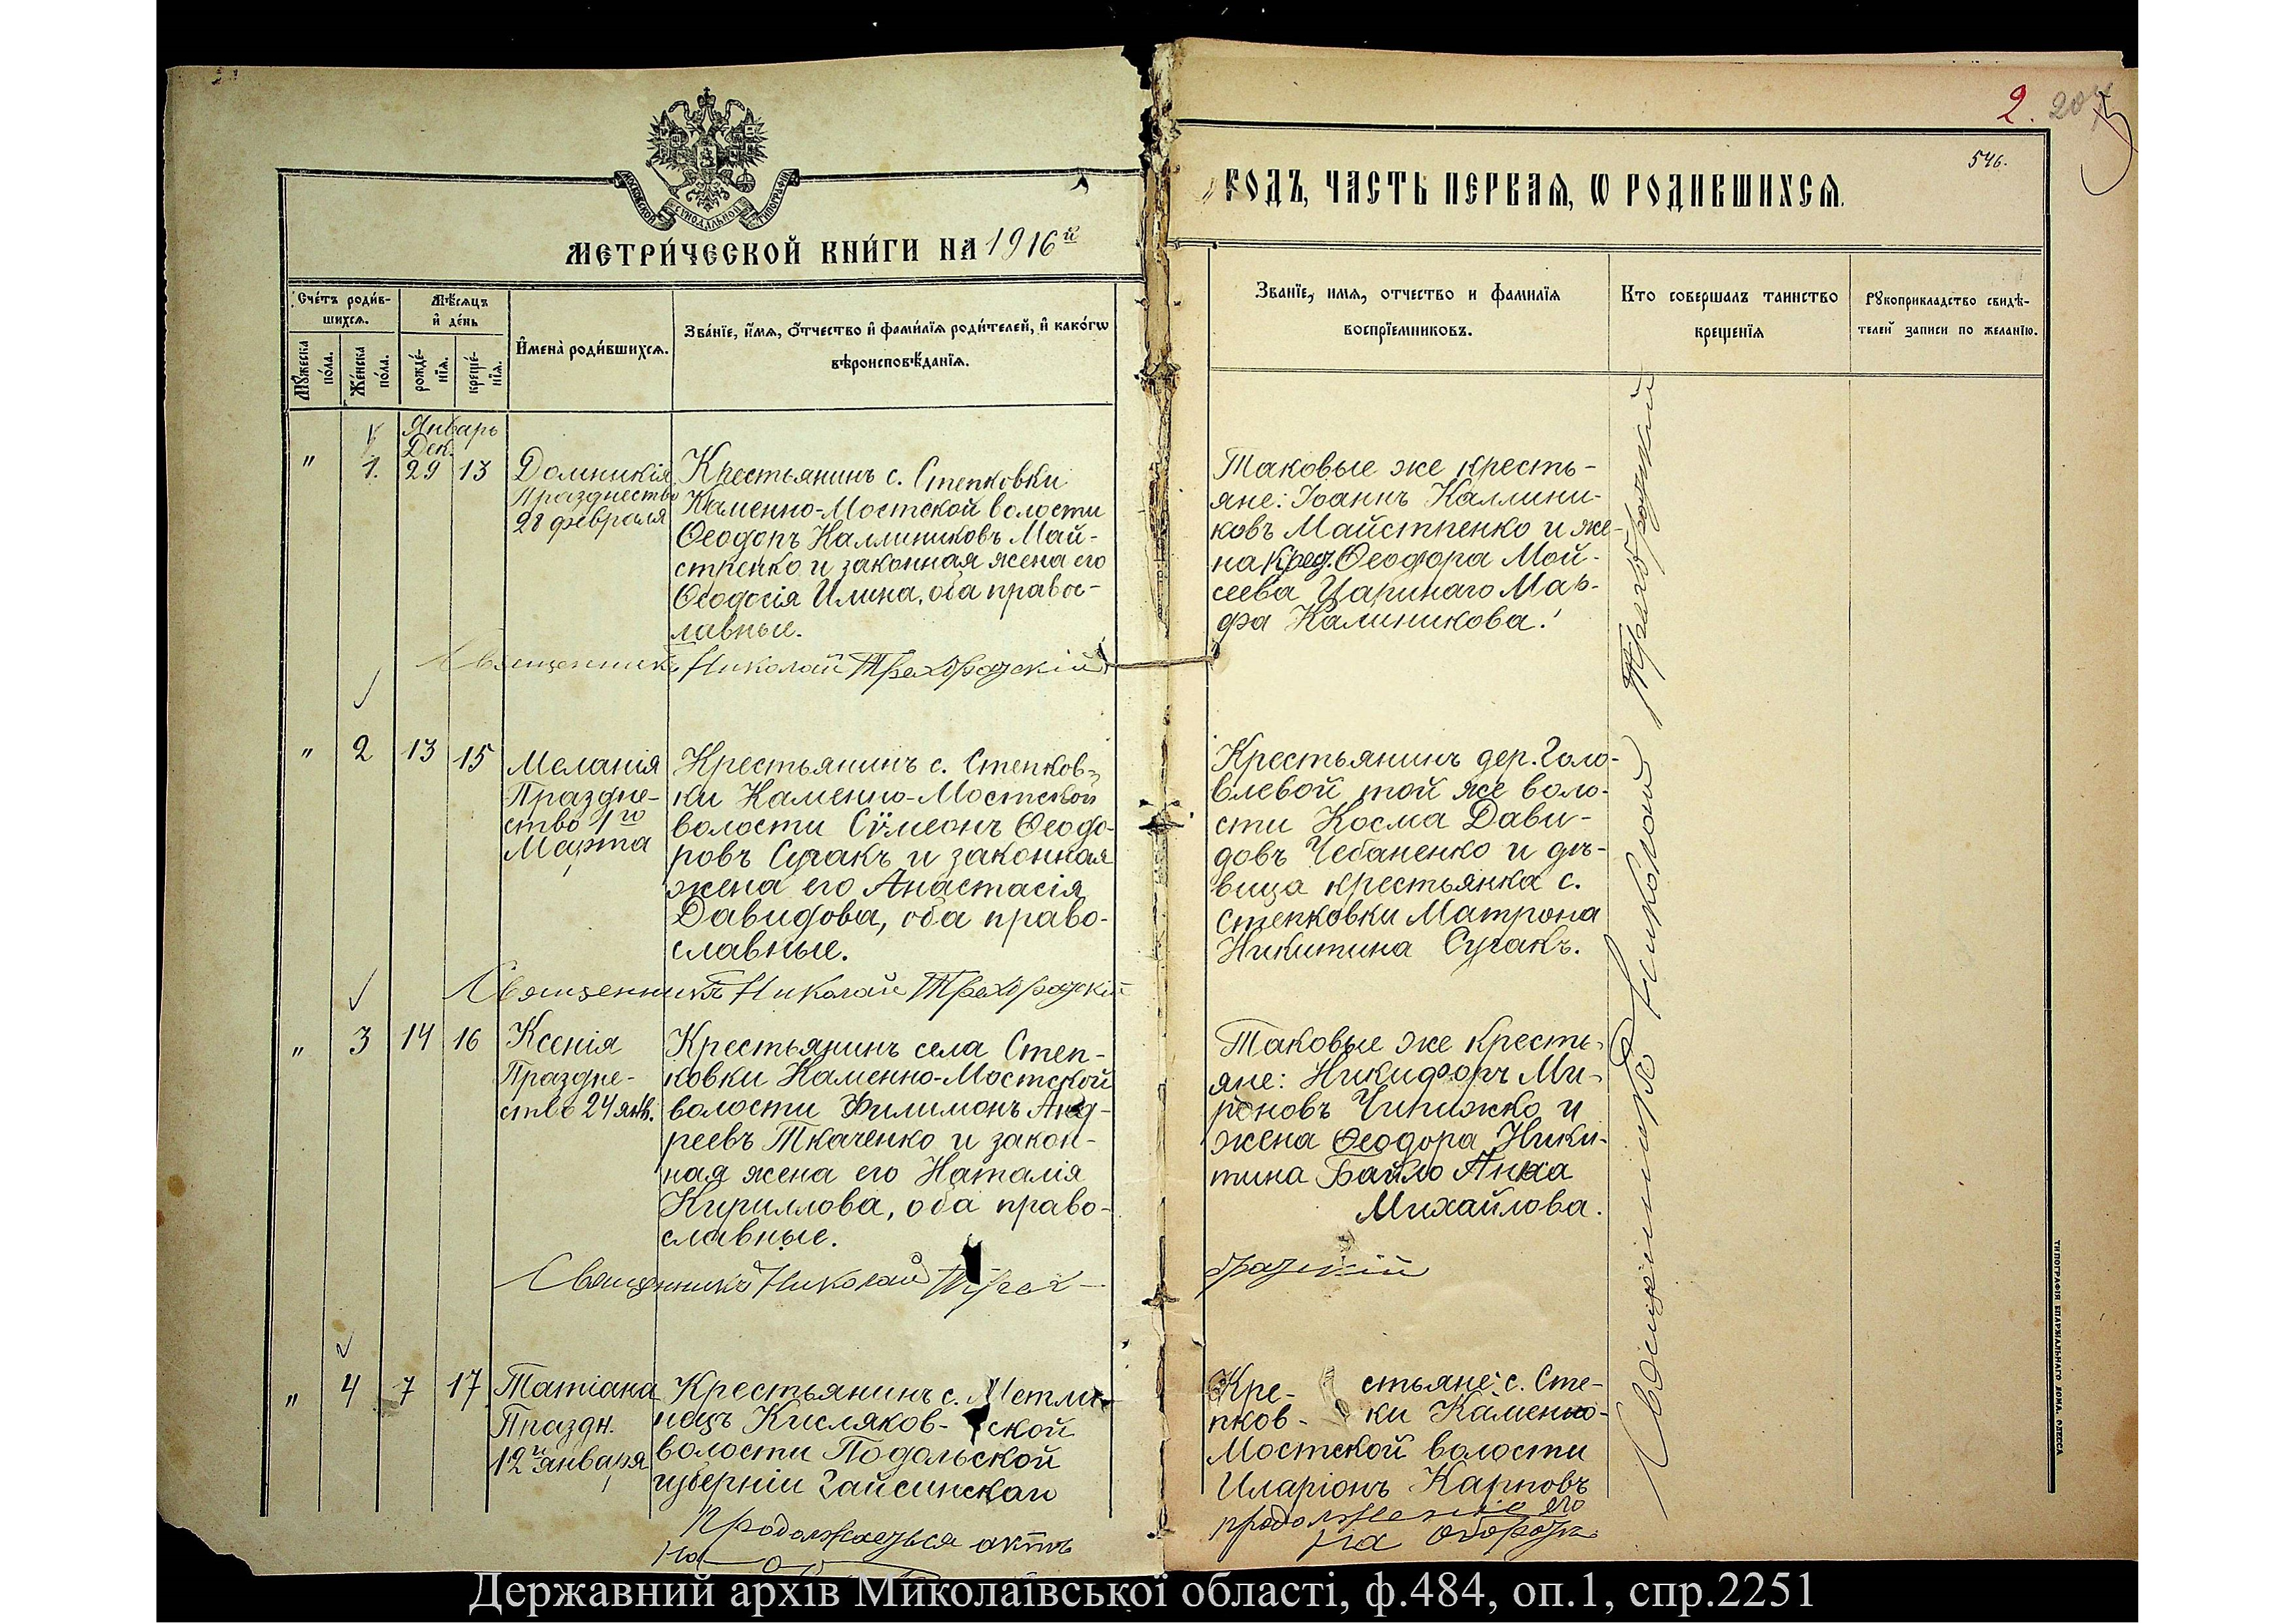 2. 204
546.
МОСКОВСКОЙ СѴНОДАЛЬНОЙ ТИПОГРАФІИ
МЕТРИ́ЧЕСКОЙ КНИ́ГИ НА 1916й
ГОДЪ, ЧАСТЬ ПЕРВАѦ, Ѡ РОДИВШИХСѦ.
Сче́тъ роди́в-
шихсѧ.
Мꙋ́жеска по́ла.
Же́нска по́ла.
Мѣ́сѧцъ
и҆ де́нь
рожде́-
нїѧ.
креще́-
нїѧ.
И҆мена̀ роди́вшихсѧ.
Зва́нїе, и҆́мѧ, ѻ҆́тчество и҆ фами́лїѧ роди́телей, и҆ како́гѡ
вѣроисповѣ́данїѧ.
Званїе, имѧ, отчество и фамилїѧ
воспрїемниковъ.
Кто совершалъ таинство
крещенїѧ
Рꙋкоприкладство свидѣ-
телей записи по желанїю.
Январь
Дек.
" 1. 29 13
Домникія
Празднество
28 февраля
Крестьянинъ с. Степковки
Каменно-Мостской волости
Ѳеодоръ Каллиниковъ Май-
стренко и законная жена его
Ѳеодосія Илина, оба правос-
лавные.
Таковые же кресть-
яне: Іоаннъ Каллини-
ковъ Майстренко и же-
на Ѳеодора Мой-
сеева Царинаго Мар-
фа Калиникова.
Священникъ Николай
" 2 13 15
Меланія
Праздне-
ство 1го
Марта
Крестьянинъ с. Степков-
ки Каменно-Мостской
волости Сѵмеонъ Ѳеодо-
ровъ Сугакъ и законная
жена его Анастасія
Давидова, оба право-
славные.
Крестьянинъ дер. Голо-
влевой той же воло-
сти Косма Дави-
довъ Чебаненко и дѣ-
вица крестьянка с.
Степковки Матрона
Никитина Сугакъ.
Священникъ Николай
" 3 14 16
Ксенія
Праздне-
ство 24 янв.
Крестьянинъ села Степ-
ковки Каменно-Мостской
волости Филимонъ Анд-
реевъ Ткаченко и закон-
ная жена его Наталія
Кириллова, оба право-
славные.
Таковые же кресть-
яне: Никифоръ Ми-
роновъ Чипижко и
жена Ѳеодора Ники-
тина Байло Анна
Михайлова.
Священникъ Николай
" 4 7 17
Татіана
Праздн.
12го января
Крестьянинъ с. Метли-
нецъ Кисляков-ской
волости Подольской
губерніи Гайсинскаго
Продолжается актъ
на
Кре-стьяне: с. Сте-
пков-ки Каменно-
Мостской волости
Иларіонъ Карповъ
продолженіе его
на оборотѣ
Священникъ Николай
ТИПОГРАФІЯ ЕПАРХІАЛЬНАГО ДОМА, ОДЕССА
Державний архів Миколаївської області, ф.484, оп.1, спр.2251